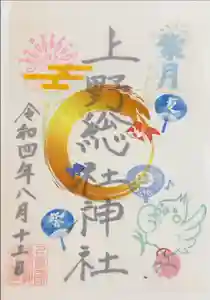 葉月
上野総社神社
夏
祭
令和四年八月十三日